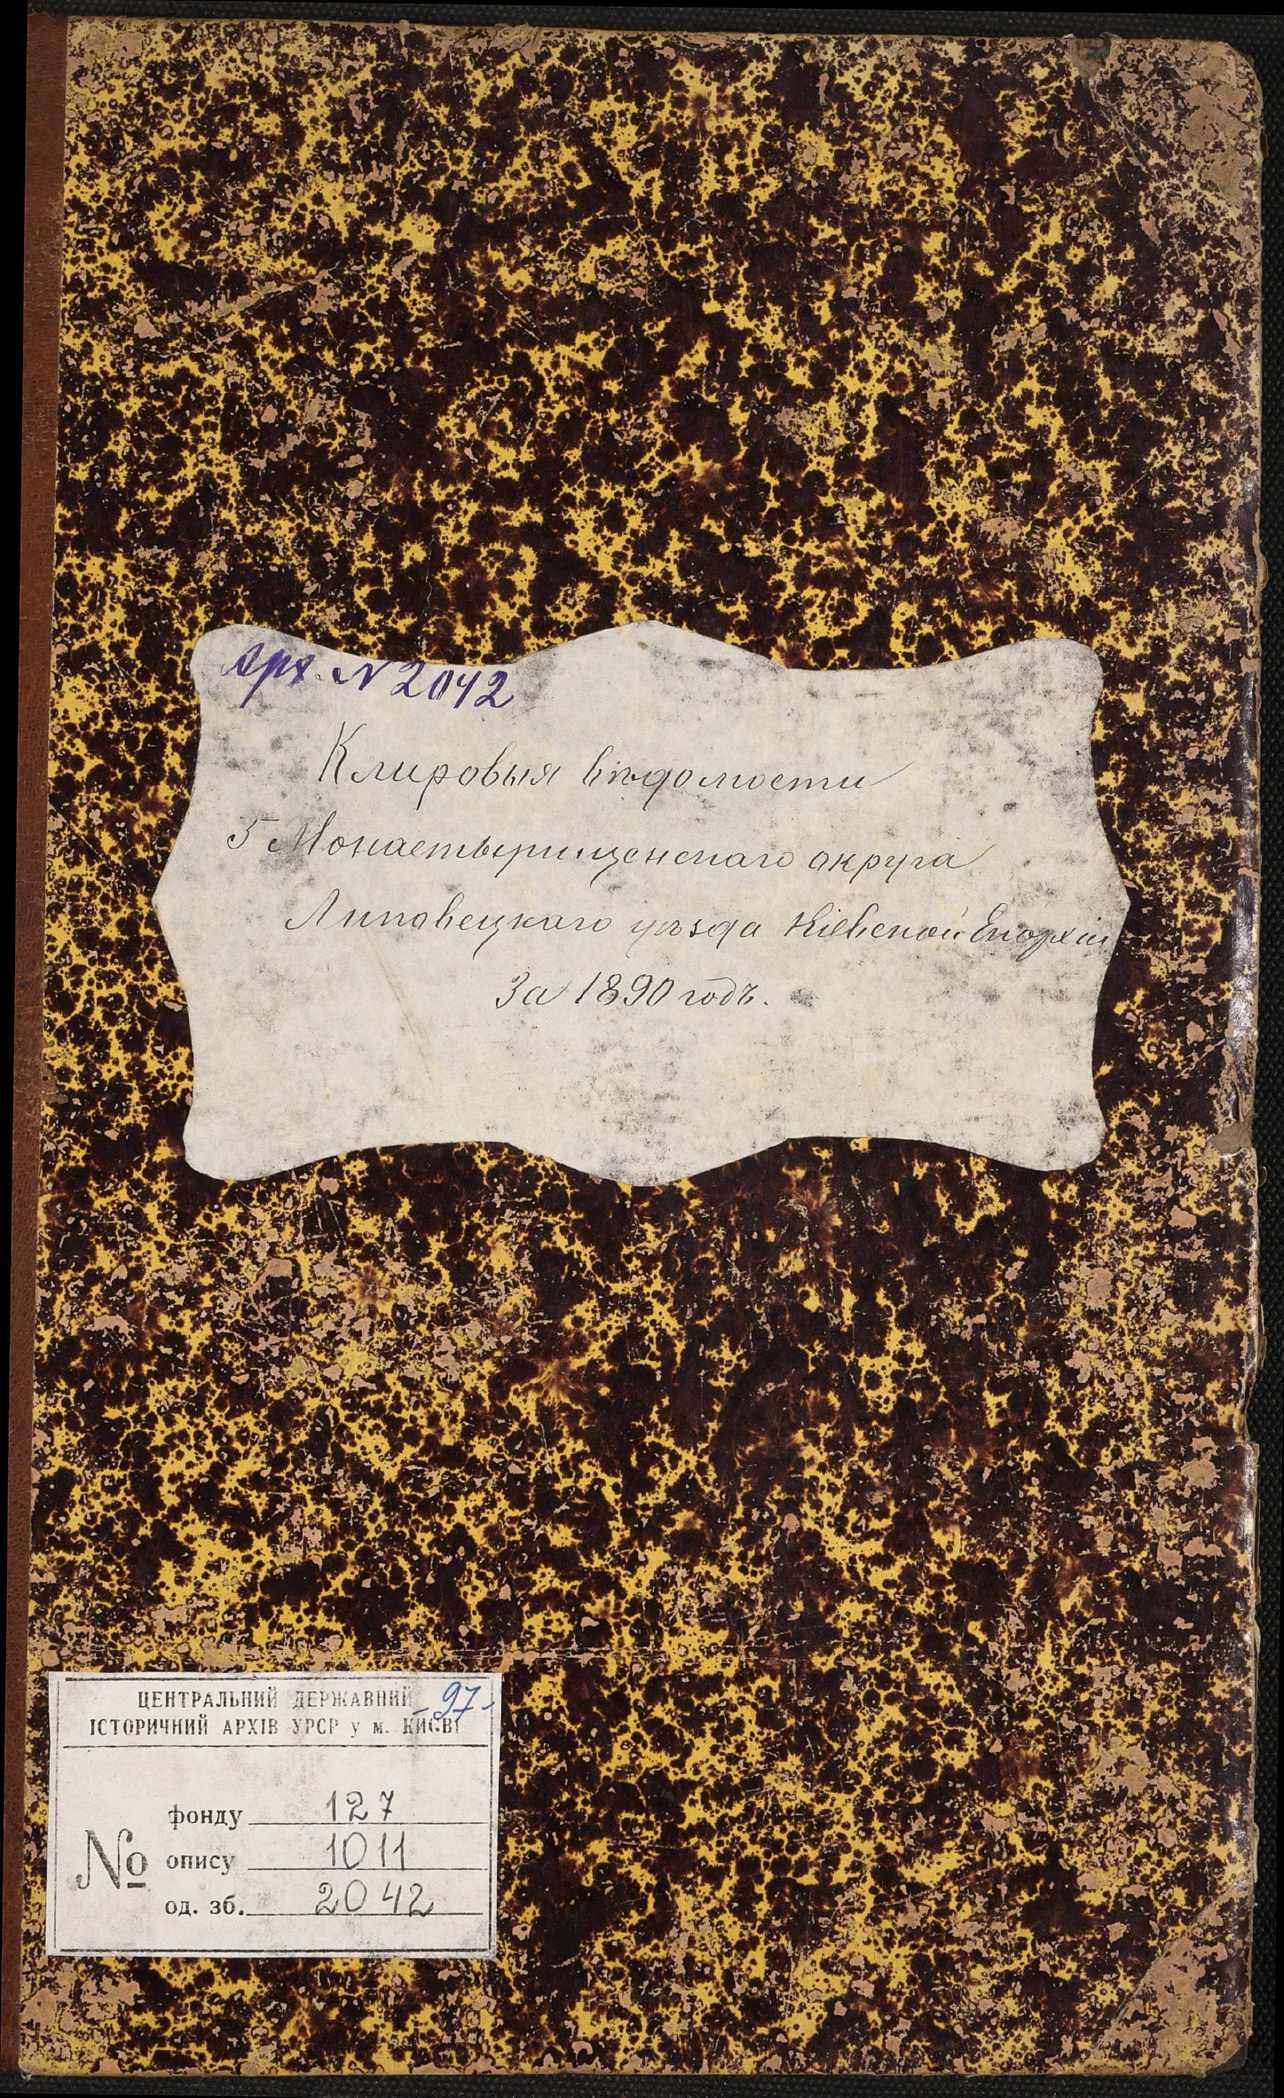 Арх. № 2042
Клировыя вѣдомости
5 Монастырищенскаго округа
Липовецкаго уѣзда Кіевской Епархіи
За 1890 годъ.
ЦЕНТРАЛЬНИЙ ДЕРЖАВНИЙ -97-
ІСТОРИЧНИЙ АРХІВ УРСР у м. КИЄВІ
№
фонду 127
опису 1011
од. зб. 2042